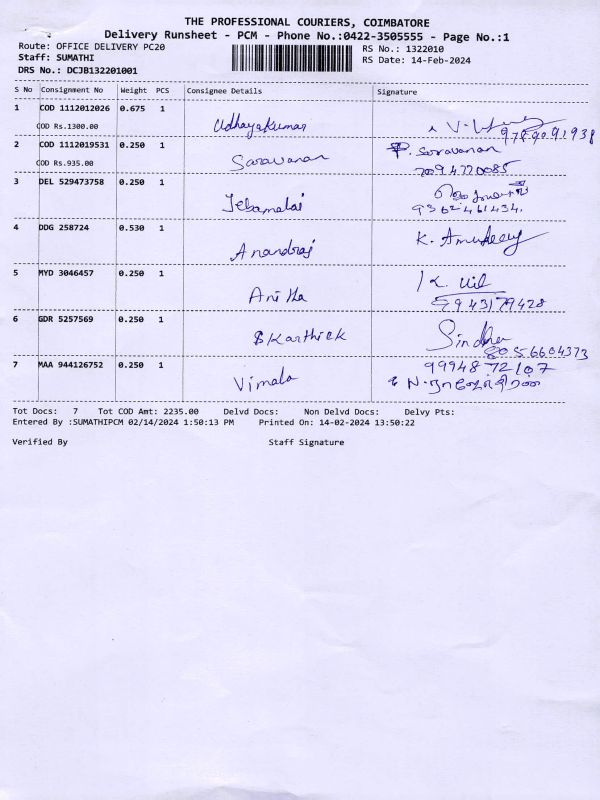 THE PROFESSIONAL COURIERS, COIMBATORE
Delivery Runsheet - PCM - Phone No.:0422-3505555 - Page No.:1
Route: OFFICE DELIVERY PC20
RS No.: 1322010
Staff: SUMATHI
RS Date: 14-Feb-2024
DRS No.: DCJB132201001
S No Consignment No Weight PCS Consignee Details Signature
1 COD 1112012026 0.675 1 Udhayakumar
COD Rs.1300.00
2 COD 1112019531 0.250 1 Saravanan P. Saravanan
COD Rs.935.00 7094770085
3 DEL 529473758 0.250 1 Jebamalai
9362461434.
4 DDG 258724 0.530 1 Anandraj K.
5 MYD 3046457 0.250 1 Anitha
6 GDR 5257569 0.250 1 S Karthick Sindhu
8056604373
7 MAA 944126752 0.250 1 Vimala 9994872107
Tot Docs: 7 Tot COD Amt: 2235.00 Delvd Docs: Non Delvd Docs: Delvy Pts:
Entered By :SUMATHIPCM 02/14/2024 1:50:13 PM Printed On: 14-02-2024 13:50:22
Verified By Staff Signature